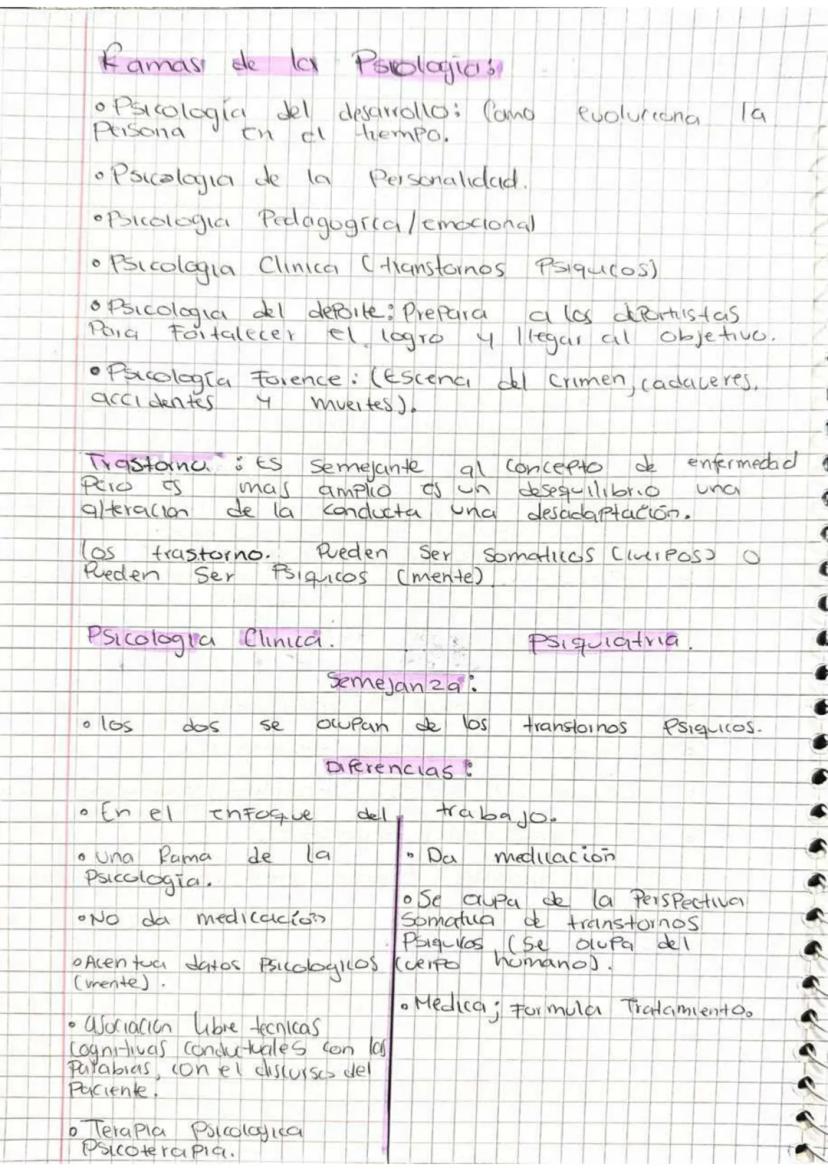 Ramas de la Psicologia:
• Psicología del desarrollo: Como evoluciona la
Persona en el tiempo.
• Psicologia de la Personalidad.
• Psicologia Pedagogica/emocional
• Psicologia Clinica (transtornos Psiquicos)
• Psicologia del deporte: Prepara a los deportistas
Para Fortalecer el logro y llegar al objetivo.
• Psicología Forence: (Escena del Crimen, cadaveres,
accidentes y muertes).
Trastorno: Es semejante al concepto de enfermedad
Pero es mas amplio es un desequilibrio una
alteracion de la conducta una desadaptación.
los trastorno. Pueden Ser somaticos (cuerpos) o
Pueden Ser Psiquicos (mente)
Psicologia Clinica. Psiquiatria.
Semejanza:
• los dos se ocupan de los transtornos Psiquicos.
Diferencias:
• En el enfoque del trabajo.
• una Rama de la
Psicología.
• No da medicación
• Acentua datos Psicologicos
(mente).
• asociacion libre tecnicas
cognitivas conductuales con las
Palabras, con el discurso del
Paciente.
• Terapia Psicologica
Psicoterapia.
• Da medicación
• Se ocupa de la Perspectiva
Somatica de transtornos
Psiquicos (Se ocupa del
cuerpo humano).
• Medica; Formula Tratamiento.